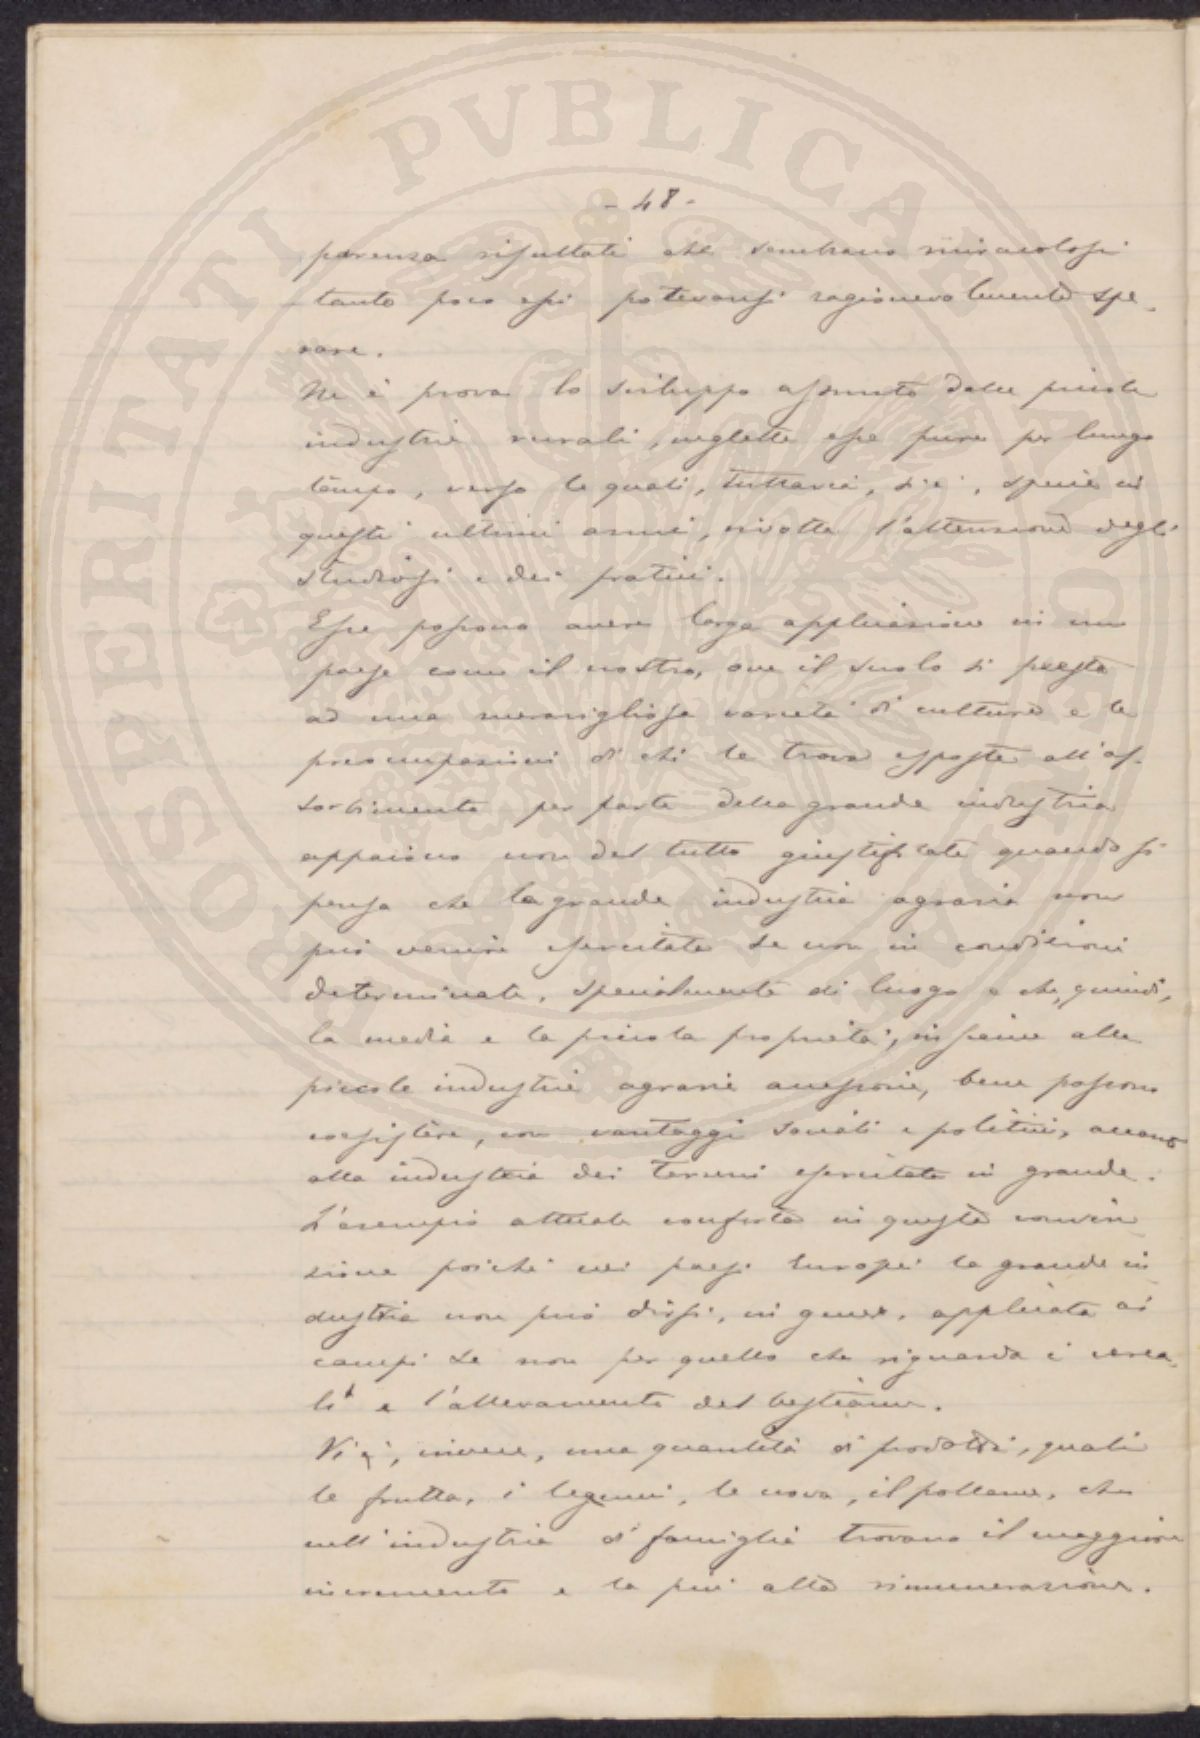 - 48 -
parenza risultati che sembrano miracolosi
tanto poco essi potevansi ragionevolmente spe-
rare.
Ne è prova lo sviluppo assunto dalle piccole
industrie rurali, neglette esse pure per lungo
tempo, verso le quali, tuttavia, s'è, specie in
questi ultimi anni, rivolta l'attenzione degli
studiosi e dei pratici.
Esse possono avere larga applicazione in un
paese come il nostro, ove il suolo si presta
ad una meravigliosa varietà di culture e le
preoccupazioni di chi le trova esposte all'as-
sorbimento per parte della grande industria
appaiono non del tutto giustificate quando si
pensa che la grande industria agraria non
può venire esercitata se non in condizioni
determinate, specialmente di luogo e che, quindi,
la media e la piccola proprietà, insieme alle
piccole industrie agrarie annessevi, bene possono
coesistere, con vantaggi sociali e politici, accanto
alla industria dei terreni esercitata in grande.
L'esempio attuale conforta in questa convin
zione poichè nei paesi europei la grande in
dustria non può dirsi, in genere, applicata ai
campi se non per quello che riguarda i cerea-
li e l'allevamento del bestiame.
Vi è, invece, una quantità di prodotti, quali
le frutta, i legumi, le uova, il pollame, che
nell'industria di famiglia trovano il maggiore
incremento e la più alta rimunerazione.
PROSPERITATI PVBLICAE AVGENDAE